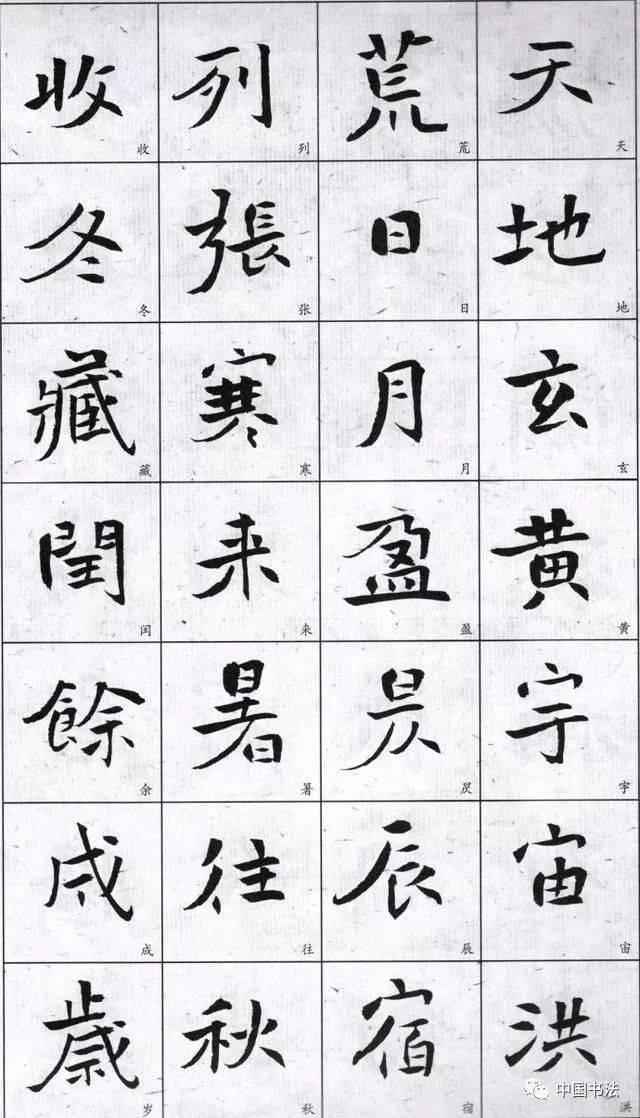 天地玄黄宇宙洪
天地玄黄宇宙洪
荒日月盈昃辰宿
荒日月盈昃辰宿
列張寒来暑往秋
列张寒来暑往秋
收冬藏閏餘成歳
收冬藏闰余成岁
中国书法